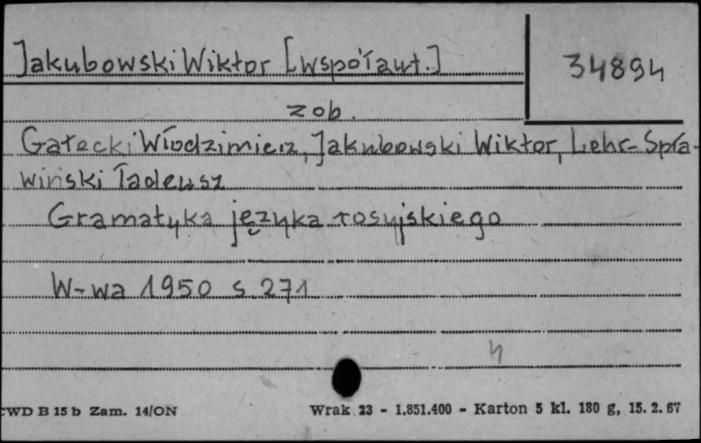 Jakubowski Wiktor [współaut.]
34894
zob.
Gałecki Włodzimierz, Jakubowski Wiktor, Lehr-Spła-
wiński Tadeusz
Gramatyka języka rosyjskiego
W-wa 1950 s. 271
4
CWD B 15 b Zam. 14/ON
Wrak 23 - 1.851.400 - Karton 5 kl. 180 g, 15. 2. 67